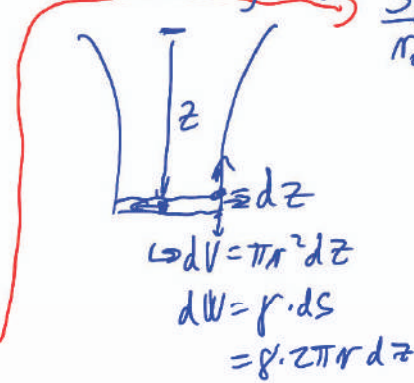 z
dz
↳dV = πr²dz
dW = γ·ds
= γ·2πr dz